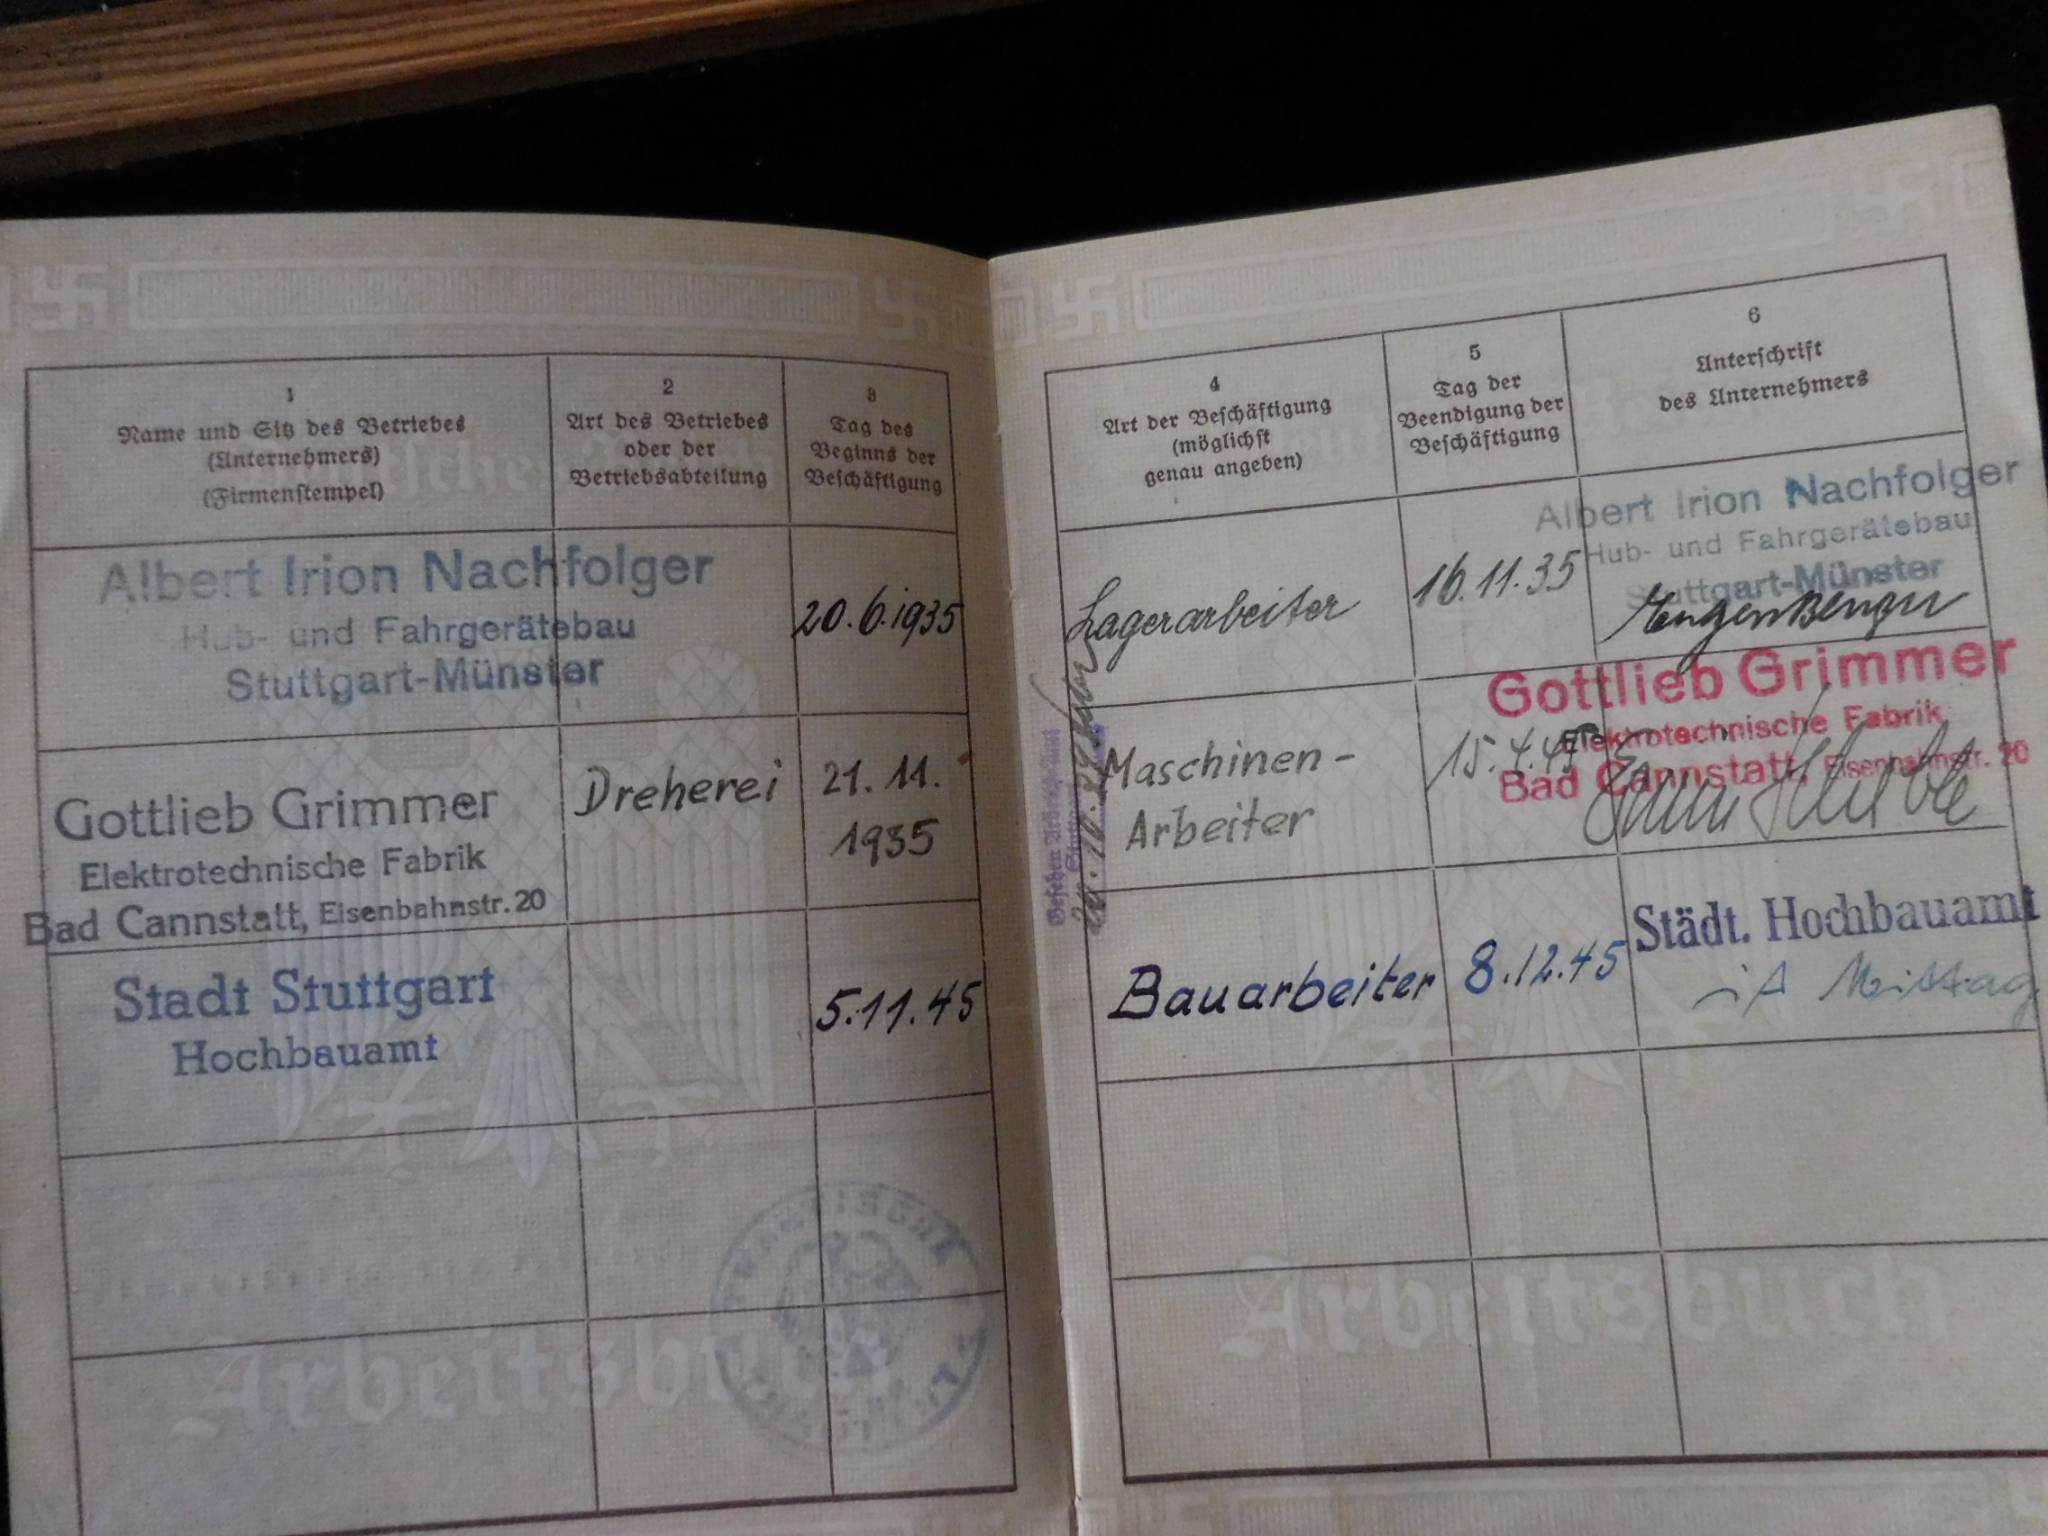 1
Name und Sitz des Betriebes
(Unternehmers)
(Firmenstempel)
2
Art des Betriebes
oder der
Betriebsabteilung
3
Tag des
Beginns der
Beschäftigung
Albert Irion Nachfolger
Hub- und Fahrgerätebau
Stuttgart-Münster
20.6.1935
Gottlieb Grimmer
Elektrotechnische Fabrik
Bad Cannstatt, Eisenbahnstr. 20
Dreherei
21. 11.
1935
Stadt Stuttgart
Hochbauamt
5.11.45
Arbeitsbuch
4
Art der Beschäftigung
(möglichst
genau angeben)
5
Tag der
Beendigung der
Beschäftigung
6
Unterschrift
des Unternehmers
Lagerarbeiter
16.11.35
Albert Irion Nachfolger
Hub- und Fahrgerätebau
Stuttgart-Münster
Maschinen-
Arbeiter
15.4.45
Gottlieb Grimmer
Elektrotechnische Fabrik
Bad Cannstatt, Eisenbahnstr. 20
Bauarbeiter
8.12.45
Städt. Hochbauamt
iA Mittag
Arbeitsbuch